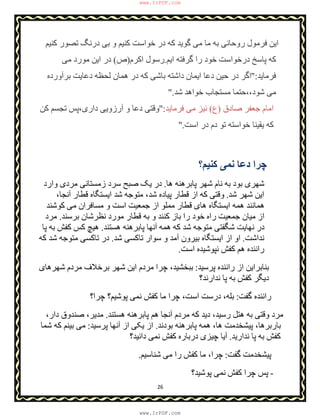 www.IrPDF.com
این فرمول روحانی به ما می گوید که در خواست کنیم و بی درنگ تصور کنیم
که پاسخ درخواست خود را گرفته ایم.رسول اکرم(ص) در این مورد می
فرماید:"اگر در حین دعا ایمان داشته باشی که در همان لحظه دعایت برآورده
می شود،،حتما مستجاب خواهد شد."
امام جعفر صادق (ع) نیز می فرماید:"وقتی دعا و آرزویی داری،پس تجسم کن
که یقینا خواسته تو دم در است."
چرا دعا نمی کنیم؟
شهری بود به نام شهر پابرهنه ها. در یک صبح سرد زمستانی مردی وارد
این شهر شد. وقتی که از قطار پیاده شد، متوجه شد ایستگاه قطار آنجا،
همانند همه ایستگاه های قطار مملو از جمعیت است و مسافران می کوشند
از میان جمعیت راه خود را باز کنند و به قطار مورد نظرشان برسند. مرد
در نهایت شگفتی متوجه شد که همه آنها پابرهنه هستند. هیچ کس کفش به پا
نداشت. او از ایستگاه بیرون آمد و سوار تاکسی شد. در تاکسی متوجه شد که
راننده هم کفش نپوشیده است.
بنابراین از راننده پرسید: ببخشید، چرا مردم این شهر برخلاف مردم شهرهای
دیگر کفش به پا ندارند؟
راننده گفت: بله، درست است، چرا ما کفش نمی پوشیم؟ چرا؟
مرد وقتی به هتل رسید، دید که مردم آنجا هم پابرهنه هستند. مدیر، صندوق دار،
باربرها، پیشخدمت ها، همه پابرهنه بودند. از یکی از آنها پرسید: می بینم که شما
کفش به پا ندارید. آیا چیزی درباره کفش نمی دانید؟
پیشخدمت گفت: چرا، ما کفش را می شناسیم.
- پس چرا کفش نمی پوشید؟
26
www.IrPDF.com